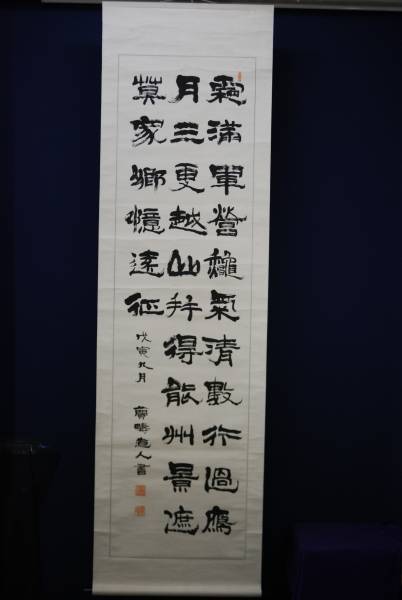 霜滿軍營龝氣清數行過鴈
月三更越山并得能州景遮
莫家鄉憶遠征
戊寅九月 人書